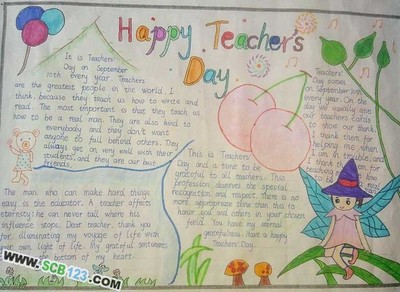 Happy Teacher's
Day
It is Teachers'
Day on September
10th every year. Teachers
are the greatest people in the world. I
think, because they teach us how to write and
read. The most important is that they teach us
how to be a real man. They are also kind to
everybody and they don't want
anyone to fall behind others. They
always get on very well with their
students, and they are our best
friends.
The man who can make hard things
easy is the educator. A teacher affects
eternity; he can never tell where his
influence stops. Dear teacher, thank you
for illuminating my voyage of life with
your own light of life. My grateful sentiments
come from the bottom of my heart.
This is Teachers'
Day and is time to be
grateful to all teachers. This
profession deserves the special
recognition and respect. There is no
more appropriate time than this to
honor you and others in your chosen
field. You have my eternal
gratefulness. Have a happy
Teachers' Day.
Teachers'
Day comes
on September 10th
every year. On the
day we usually give
our teachers cards
to show our thanks
I thank them for
helping me when
I am in trouble, and
I thank them for
teaching me
www.SCB123.com